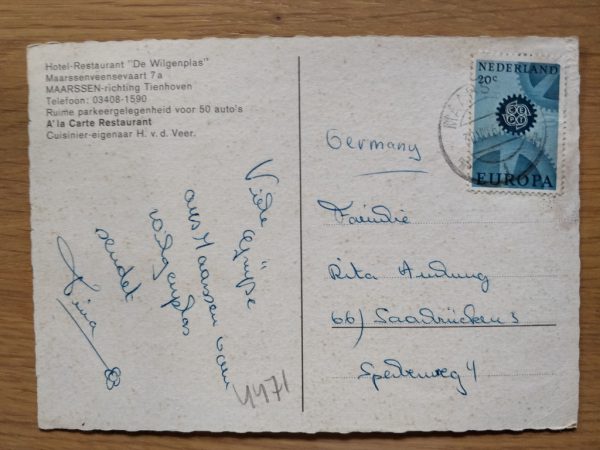 Hotel-Restaurant "De Wilgenplas"
Maarsseveensevaart 7a
MAARSSEN-richting Tienhoven
Telefoon: 03408-1590
Ruime parkeergelegenheid voor 50 auto's
A'la Carte Restaurant
Cuisinier-eigenaar H. v.d. Veer.
NEDERLAND
20c
CEPT
EUROPA
Germany
Viele Grüße
aus Maarssen
wilgenplas
sendet
Tina
4471
Familie
Rita
66) Saarbrücken 3
4